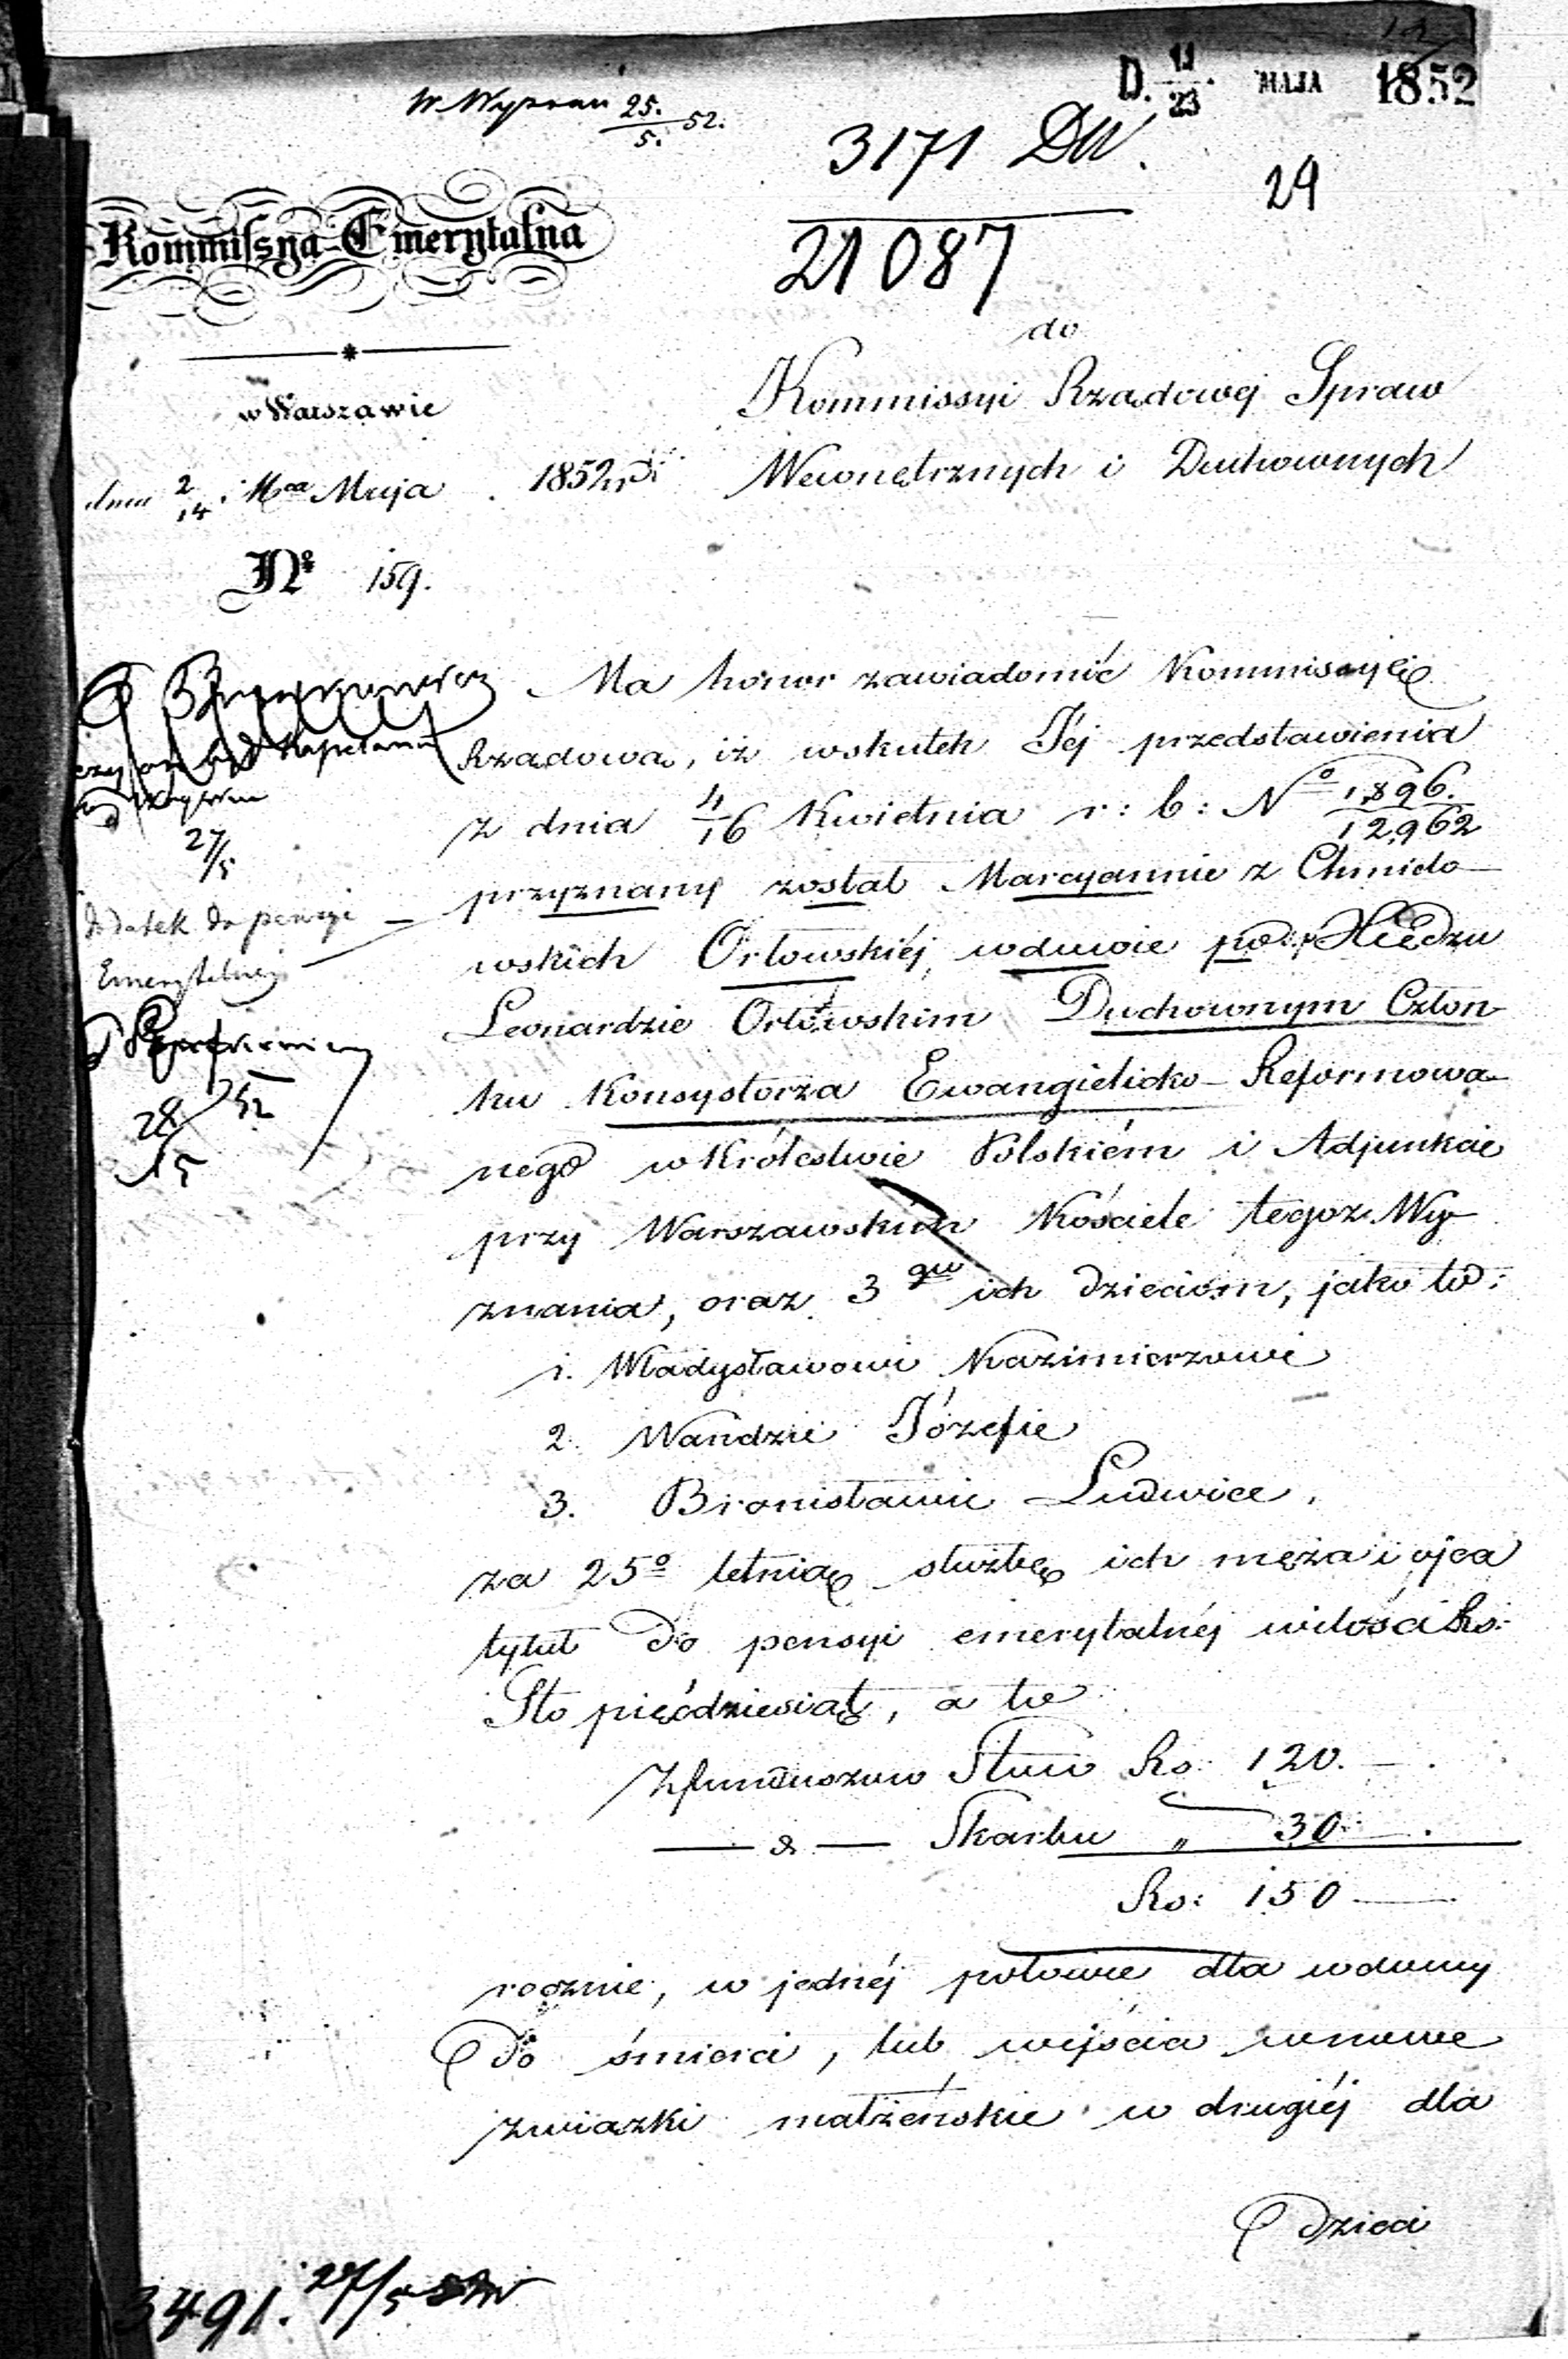 D. 11/23 MAJA 1852
W. Wyprau 25./5. 52.
3171 DW.
29
21087
Kommissya Emerytalna
do
Kommissyi Rządowej Spraw
w Warszawie
Wewnętrznych i Duchownych
dnia 2/14 Mca Maja 1852 r.
No 159.
Ma honor zawiadomić Kommissyię
Rządową, iż wskutek Jéj przedstawienia
z dnia 4/16 Kwietnia r: b: No 1896./12962
przyznany został Maryannie z Chmielo-
wskich Orłowskiéj, wdowie po: Xiędzu
Leonardzie Orłowskim Duchownym Człon-
ku Konsystorza Ewangielicko-Reformowa-
nego w Królestwie Polskiém i Adjunkcie
przy Warszawskim Kościele tegoż Wy-
znania, oraz 3 gu ich dzieciom, jako to:
1. Władysławowi Kazimierzowi
2. Wandzie Józefie
3. Bronisławie Ludwice,
za 25o letnią służbę ich męża i ojca
tytuł do pensyi emerytalnéj wilości Rs:
Sto pięćdziesiąt, a to
Z funduszów Stow Rs: 120. —
— d — Skarbu „ 30 —
Rs: 150 —
rocznie, w jednéj połowie dla wdowy
do śmierci, lub wejścia w nowe
związki małżeńskie w drugiéj dla
dzieci
27/5
dodatek do pensyi
Emerytalnej
28/5 52
3491. 27/5